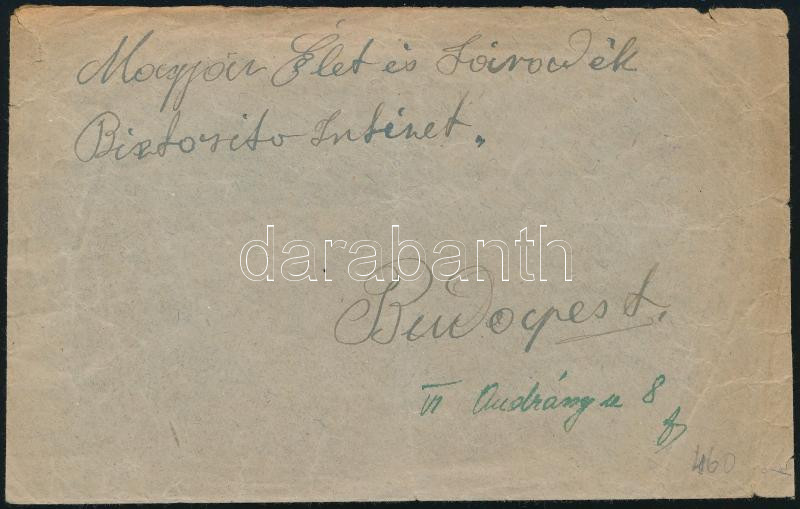 Magyar Élet és Járadék
Biztosito Intézet„
darabanth
Budapest.
VI Andrássy u 8
460